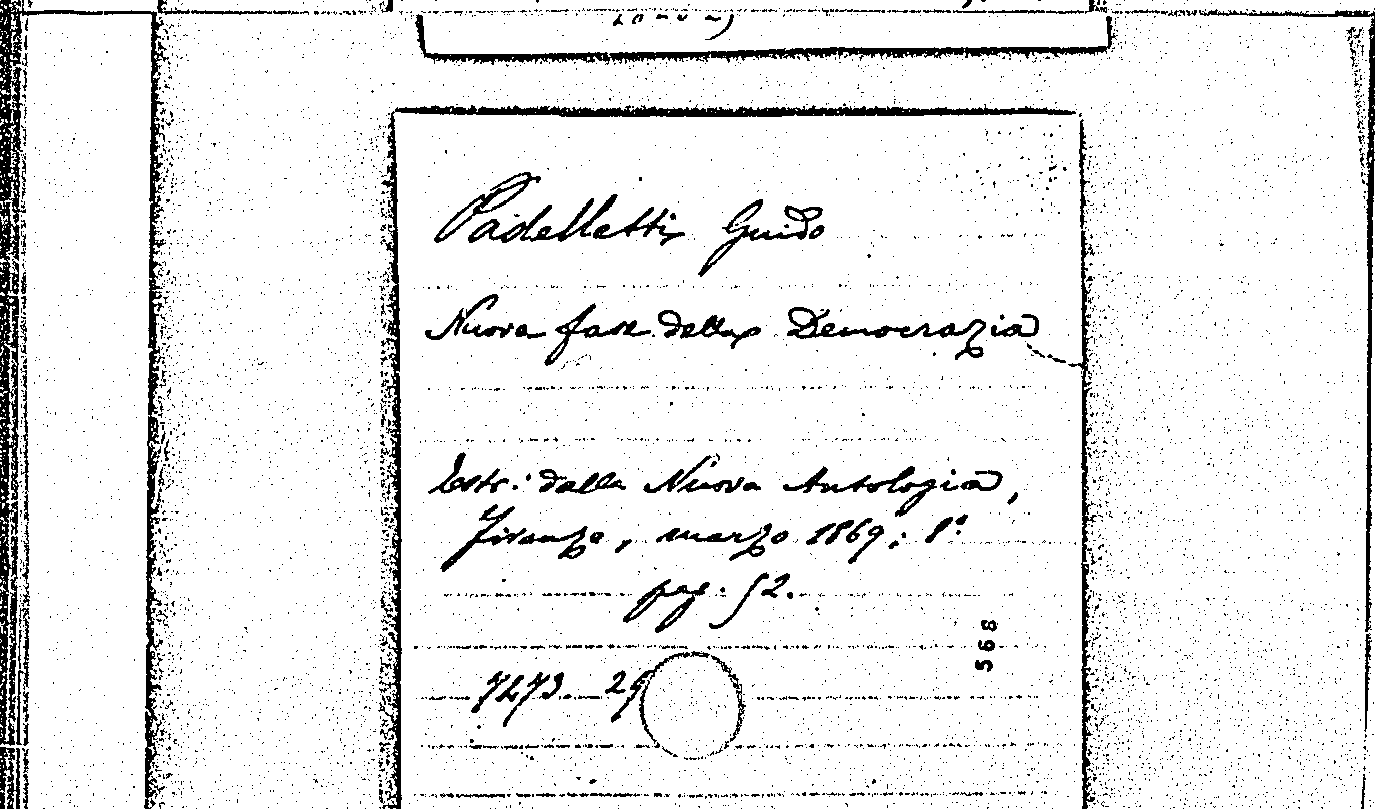 Padelletti Guido
Nuova fase della Democrazia
Estr. dalla Nuova Antologia,
Firenze, marzo 1869; 8°
pag. 52.
568